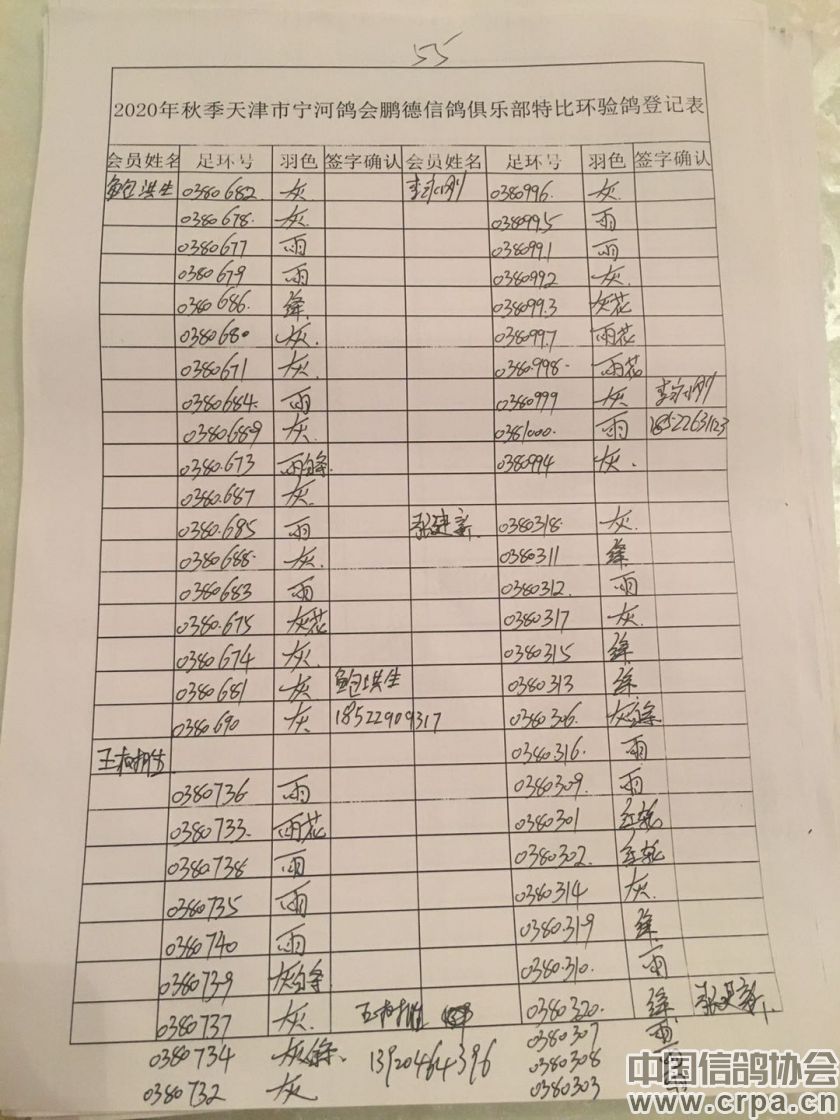 55
2020年秋季天津市宁河鸽会鹏德信鸽俱乐部特比环验鸽登记表
会员姓名 足环号 羽色 签字确认 会员姓名 足环号 羽色 签字确认
鲍洪生 0380682 灰 0380996 灰
0380678 灰 0380995 雨
0380677 雨 0380991 雨
0380679 雨 0380992 灰
0380686 绛 0380993 灰花
0380680 灰 0380997 雨花
0380671 灰 0380998 雨花
0380684 雨 0380999 灰
0380689 灰 0381000 雨 18522631123
0380673 0380994 灰
0380687 灰
0380685 雨 张建新 0380318 灰
0380688 灰 0380311 绛
0380683 雨 0380312 雨
0380675 灰花 0380317 灰
0380674 灰 0380315 绛
0380681 灰 鲍洪生 0380313 绛
0380690 灰 18522909317 0380306
0380316 雨
0380736 雨 0380309 雨
0380733 雨花 0380301 红轮
0380738 雨 0380302 红轮
0380735 雨 0380314 灰
0380740 雨 0380319 绛
0380739 0380310 雨
0380737 灰 0380320 绛 张建新
0380734 灰绛 13920464396 0380307 雨
0380732 灰 0380308
0380303
中国信鸽协会
www.crpa.cn